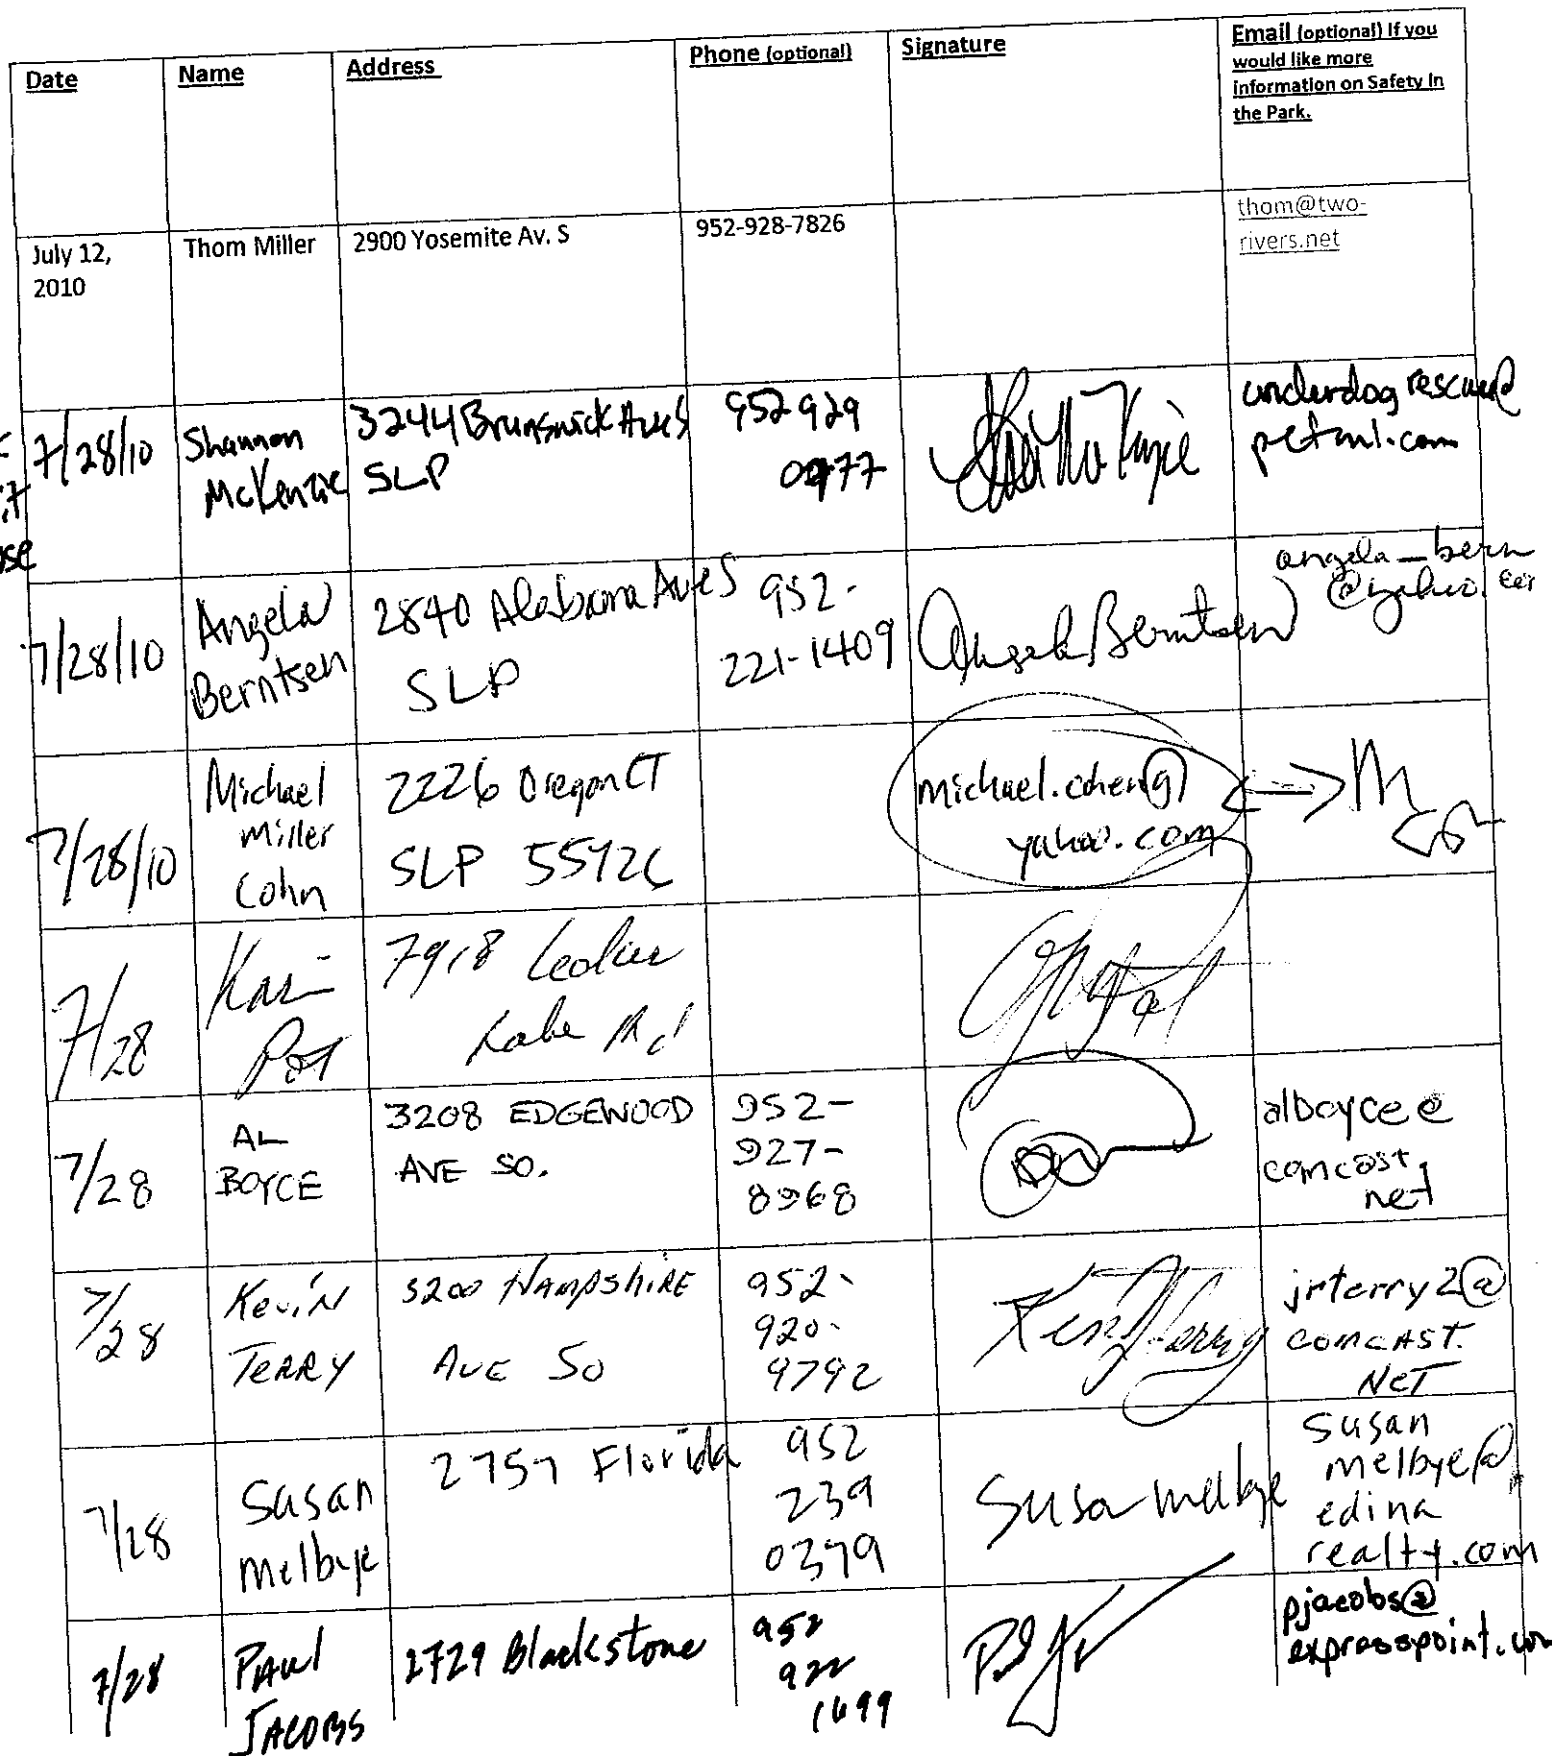 Date
Name
Address
Phone (optional)
Signature
Email (optional) If you
would like more
information on Safety In
the Park.
July 12,
2010
Thom Miller
2900 Yosemite Av. S
952-928-7826
thom@two-
rivers.net
7/28/10
Shannon
McKenzie
3244 Brunswick Ave S
SLP
952 929
underdog rescue@
7/28/10
Angela
Berntsen
2840 Alabama Ave S
SLP
952-
221-1409
Angela Berntsen
angela_bern
@yahoo.
7/28/10
Michael
Miller
Cohn
2226 Oregon CT
SLP 55426
yahoo.com
7/28
Kari
Lake Rd
7/28
AL
BOYCE
3208 EDGEWOOD
AVE SO.
952-
927-
8968
alboyce@
comcast.
net
7/28
Kevin
TERRY
3200 HAMPSHIRE
AVE SO
952-
920-
9792
jrterry2@
COMCAST.
NET
7/28
Susan
Melbye
2757 Florida
952
239
0379
Susan Melbye
susan
melbye@
edina
realty.com
7/28
PAUL
JACOBS
2729 Blackstone
952
922
1699
pjacobs@
expresspoint.com